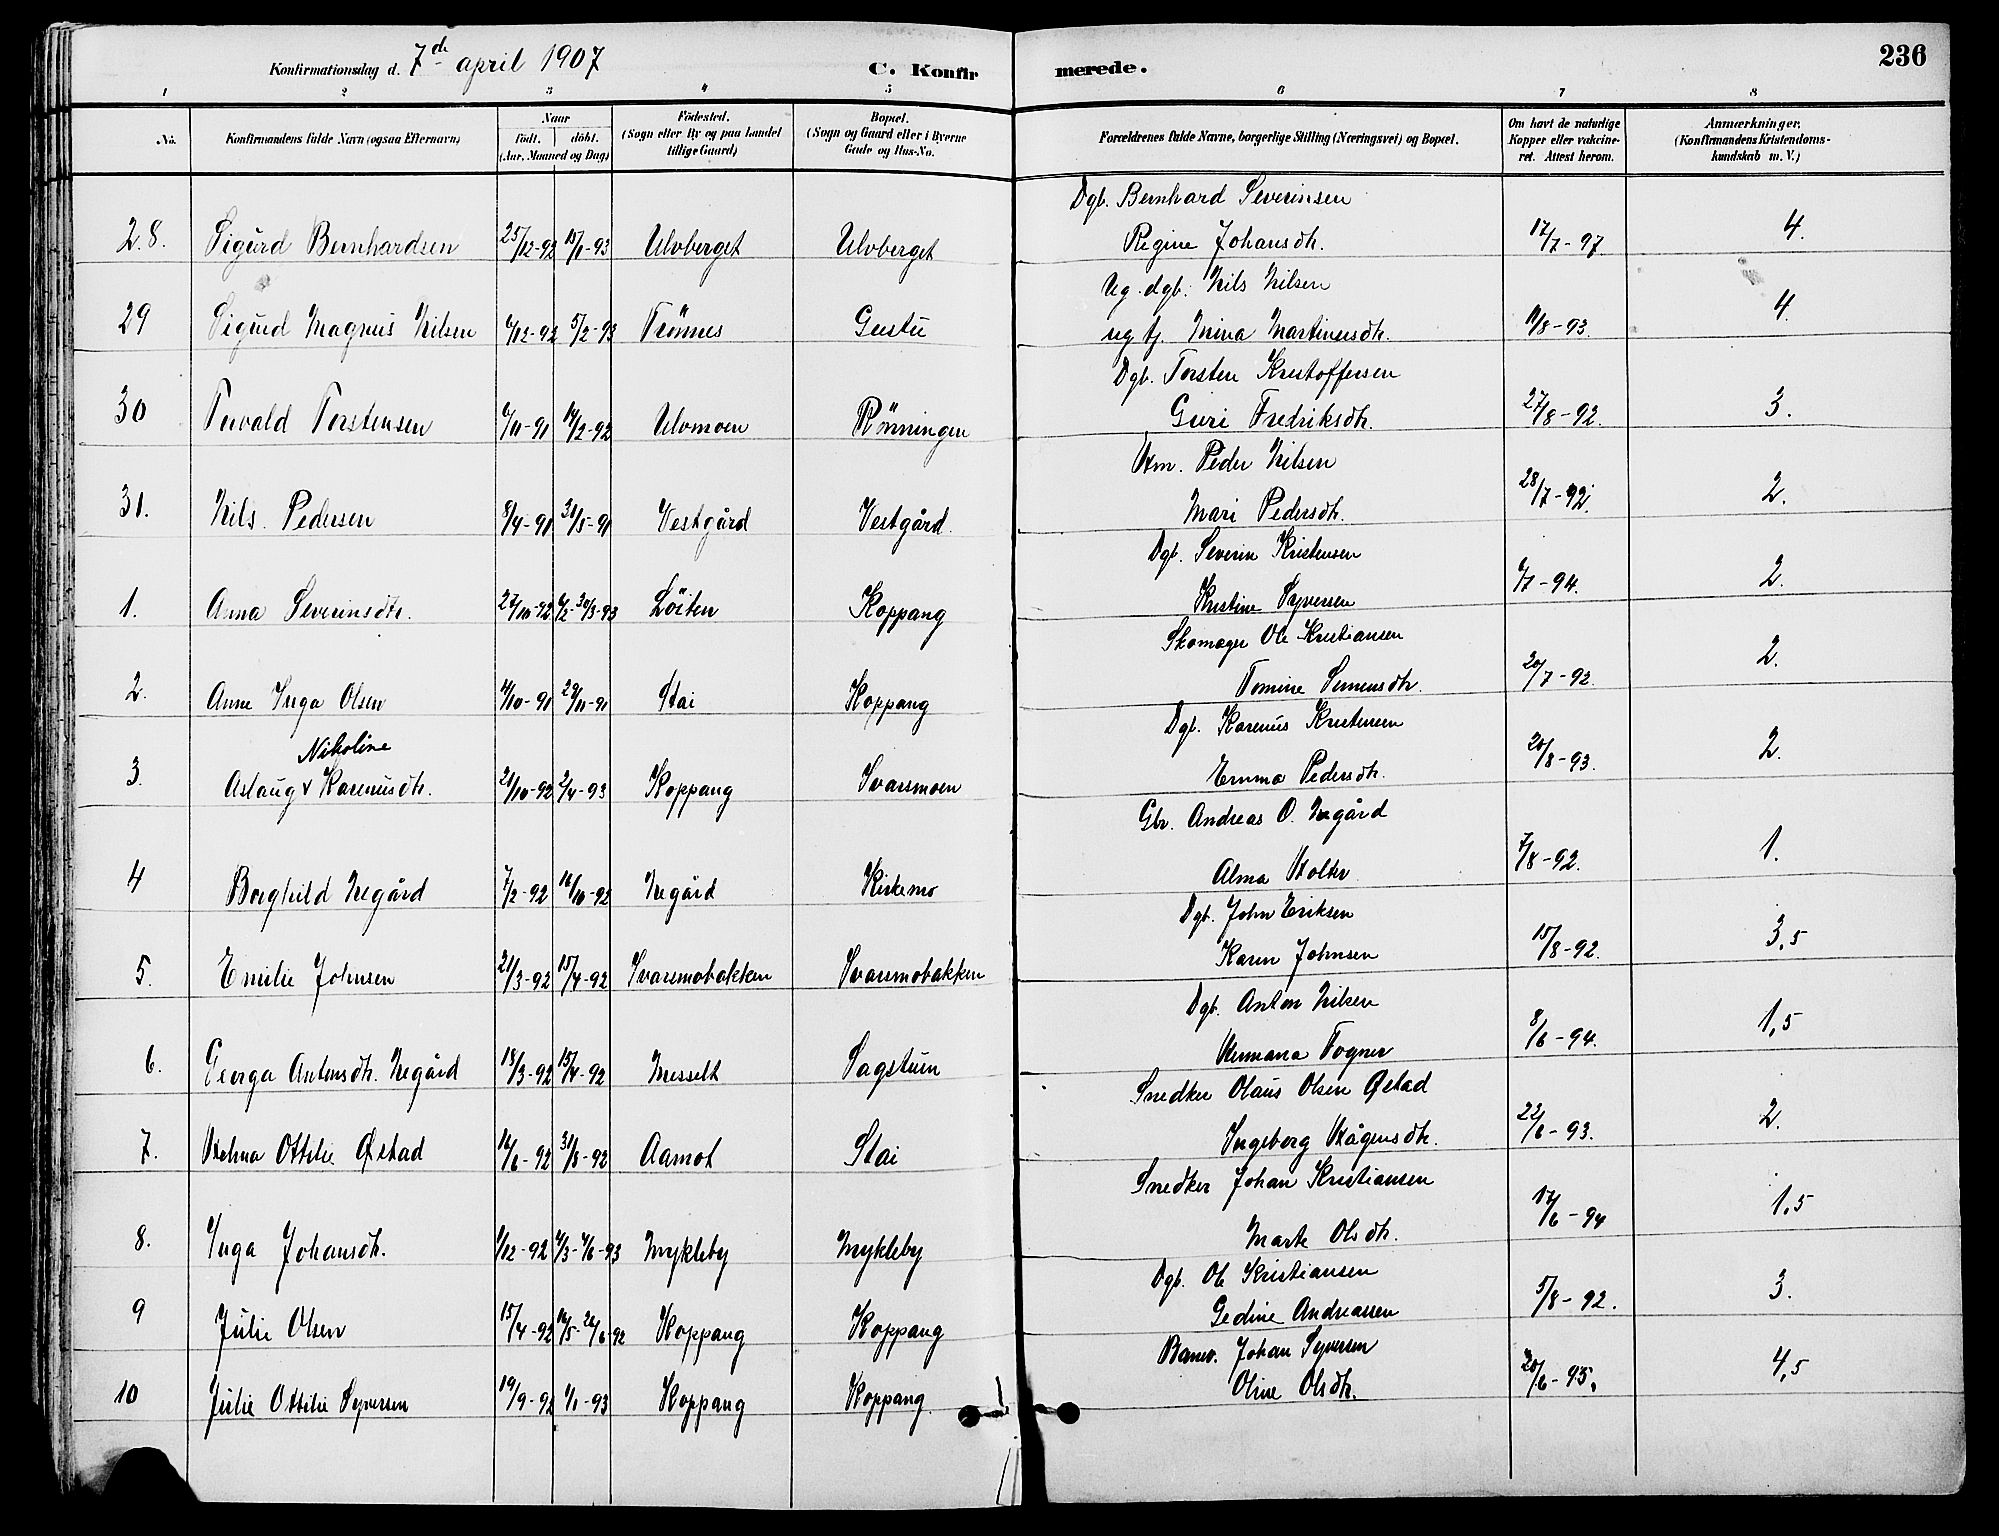 Konfirmationsdag d. 7de april 1907 C. Konfirmerede. 236
1 2 3 4 5 6 7 8
No. Konfirmandens fulde Navn (ogsaa Efternavn) Naar født. døbt. (Aar, Maaned og Dag) Födested. (Sogn eller By og paa Landet tillige Gaard) Bopæl. (Sogn og Gaard eller i Byerne Gade og Hus-No. Forældrenes fulde Navne, borgerlige Stilling (Næringsvei) og Bopæl. Om havt de naturlige Kopper eller vakcineret. Attest herom. Anmærkninger. (Konfirmandens Kristendomskundskab m. V.)
Dgb. Bernhard Severinsen
28. Sigurd Bernhardsen 25/12-92 15/1-93 Ulvberget Ulvberget Regine Johansdtr. 17/7-97. 4.
Ug. dgb. Nils Nilsen
29 Sigurd Magnus Nilsen 6/12-92 5/2-93 Trönnes Gustu ug tj. Mina Martinusdtr. 11/8-93. 4.
Dgb. Torsten Kristoffersen
30 Torvald Torstensen 6/11-91 14/2-92 Ulvmoen Rönningen Guri Fredriksdtr. 27/8-92. 3.
Hm. Peder Nilsen
31. Nils Pedersen 8/4-91 31/5-91 Vestgård Vestgård. Mari Pedersdtr. 28/7-92. 2.
Dgb. Severin Kristensen
1. Anna Severinsdtr. 27/10-92 6/2-30/3-93 Löiten Koppang Kristine Syversen 6/7-94. 2.
Skomager Ole Kristiansen
2. Anne Inga Olsen 11/10-91 29/11-91 Stai Koppang Tomine Simensdtr. 20/7-92. 2.
Nikoline Dgb. Karenus Kristensen
3. Aslaug v Karenusdtr. 21/10-92 2/4-93 Koppang Svarsmoen Emma Pedersdtr. 20/8-93. 2.
Gbr. Andreas O. Negård
4 Borghild Negård 7/2-92 16/10-92 Negård Kirkemo Alma Holter 7/8-92. 1.
Dgb. John Eriksen
5. Emilie Johnsen 21/3-92 15/4-92 Svarsmobakken Svarsmobakken Karen Johnsen 15/8-92. 3,5
Dgb. Anton Nilsen
6. Georga Antonsdtr. Negård 18/3-92 15/4-92 Messelt Sagstuen Hermana Togner 8/6-94. 1,5
Snedker Olaus Olsen Østad
7. Helma Ottilie Østad 16/6-92 31/8-92 Aamot Stai Ingeborg Hågensdtr. 22/6-93. 2.
Snedker Johan Kristiansen
8. Inga Johansdtr. 1/12-92 9/3-4/6-93 Mykleby Mykleby Marte Olsdtr. 17/6-94 1,5
Dgb. Ole Kristiansen
9 Julie Olsen 15/4-92 16/5-26/6-92 Koppang Koppang Gedine Andreassen 5/8-92. 3.
Banev. Johan Syversen
10 Julie Ottilie Syversen 19/9-92 1/1-93 Koppang Koppang. Oline Olsdtr. 20/6-95. 4,5